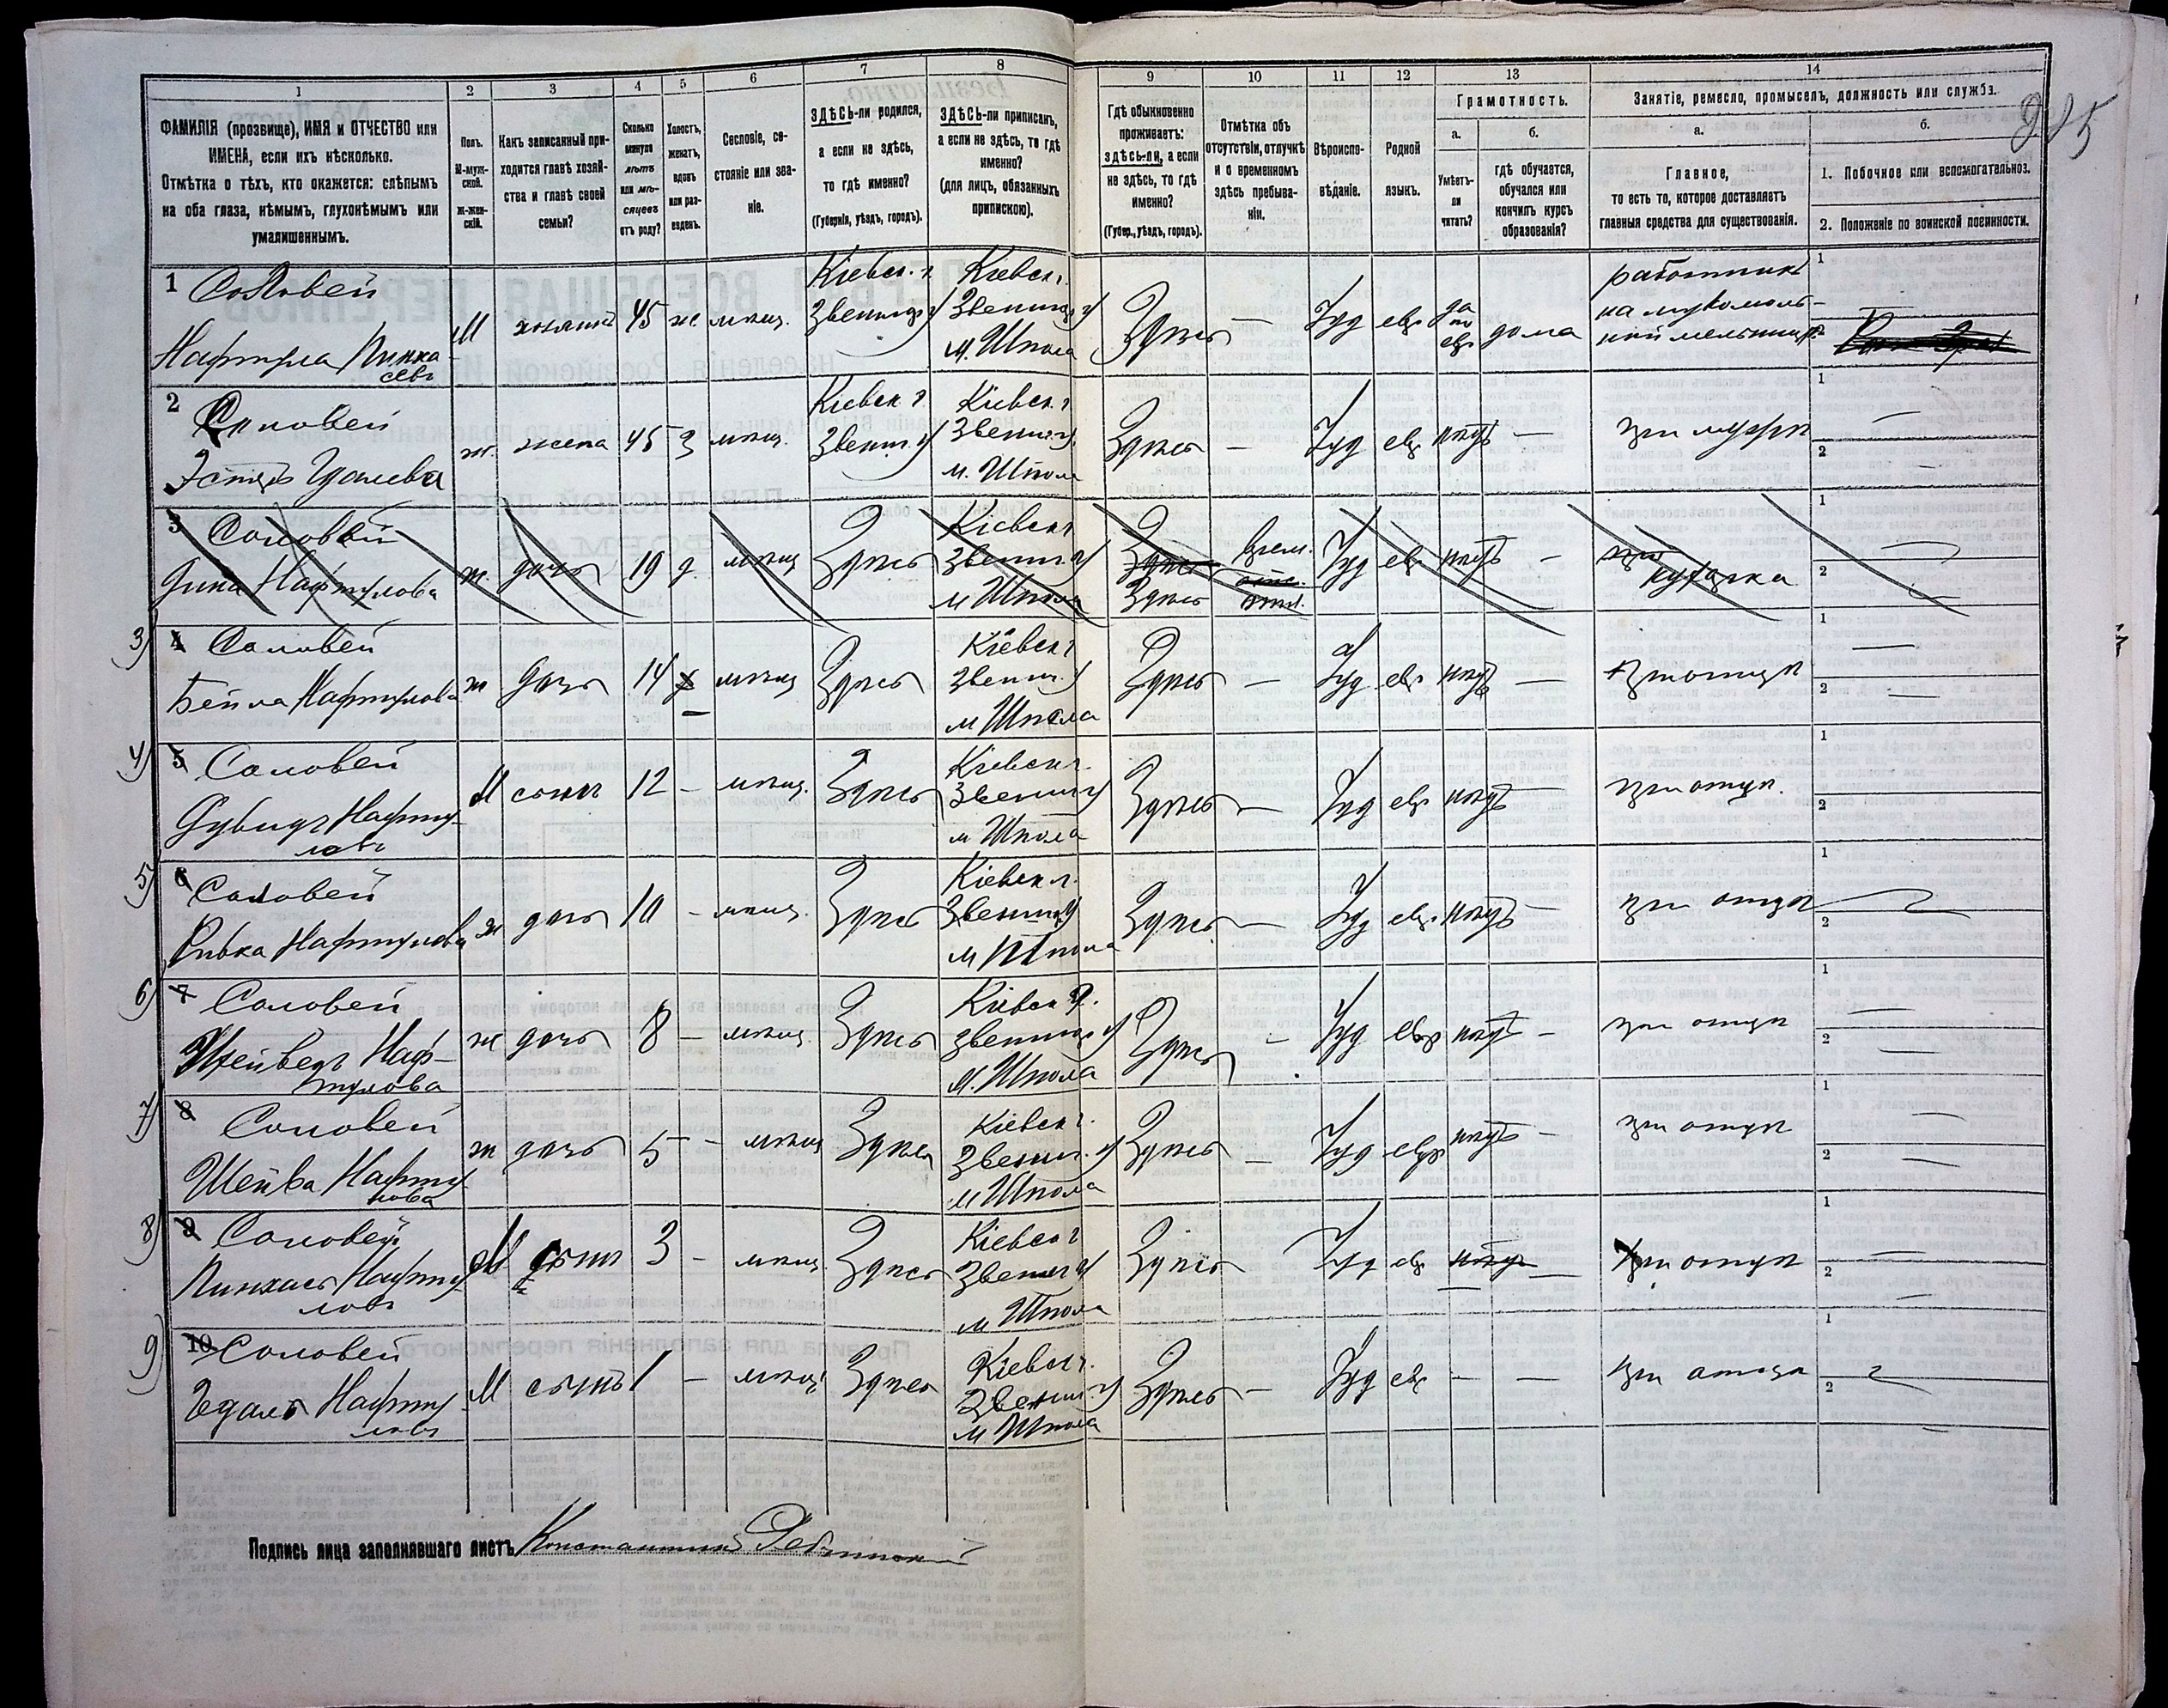 1
2
3
4
5
6
7
8
9
10
11
12
13
14
ФАМИЛІЯ (прозвище), ИМЯ и ОТЧЕСТВО или
ИМЕНА, если ихъ нѣсколько.
Отмѣтка о тѣхъ, кто окажется: слѣпымъ
на оба глаза, нѣмымъ, глухонѣмымъ или
умалишеннымъ.
Полъ.
М-муж-
ской.
Ж-жен-
скій.
Какъ записанный при-
ходится главѣ хозяй-
ства и главѣ своей
семьи?
Сколько
минуло
лѣтъ
или мѣ-
сяцевъ
отъ роду?
Холостъ,
женатъ,
вдовъ
или раз-
веденъ.
Сословіе, со-
стояніе или зва-
ніе.
ЗДѢСЬ-ли родился,
а если не здѣсь,
то гдѣ именно?
(Губернія, уѣздъ, городъ).
ЗДѢСЬ-ли приписанъ,
а если не здѣсь, то гдѣ
именно?
(для лицъ, обязанныхъ
припискою).
Гдѣ обыкновенно
проживаетъ:
здѣсь-ли, а если
не здѣсь, то гдѣ
именно?
(Губер., уѣздъ, городъ).
Отмѣтка объ
отсутствіи, отлучкѣ
и о временномъ
здѣсь пребыва-
ніи.
Вѣроиспо-
вѣданіе.
Родной
языкъ.
Грамотность.
а.
Умѣетъ-
ли
читать?
б.
гдѣ обучается,
обучался или
кончилъ курсъ
образованія?
Занятіе, ремесло, промыселъ, должность или служба.
а.
Главное,
то есть то, которое доставляетъ
главныя средства для существованія.
б.
1. Побочное или вспомогательное.
2. Положеніе по воинской повинности.
1 Соловей
Нафтула Пинка-
севъ
М хозяинъ 45 ж. мѣщ.
Кіевск. г.
Звениг. у
Кіевск. г.
Звениг. у
м. Шпола
Здѣсь — Іуд евр да
по
евр дома
работникъ
на мукомоль-
ной мельницѣ
2 Соловей
Эстеръ Гдалева
ж. жена 45 З мѣщ.
Кіевск. г.
Звениг. у
Кіевск. г.
Звениг. у
м. Шпола
Здѣсь — Іуд евр нѣтъ — при мужѣ
3 Соловей
Дина Нафтулова
ж. дочь 19 д. мѣщ Здѣсь
Кіевск г
Звениг. у
м Шпола
Здѣсь
Здѣсь
Врем.
Іуд евр нѣтъ —
кухарка
3) 4 Соловей
Бейла Нафтулова
ж дочь 14 мѣщ Здѣсь
Кіевск г
Звениг. у
м Шпола
Здѣсь — Іуд евр нѣтъ — при отцѣ
4) 5 Соловей
Дувидъ Нафту-
ловъ
М сынъ 12 — мѣщ. Здѣсь
Кіевск г.
Звениг у
м Шпола
Здѣсь — Іуд евр нѣтъ — при отцѣ.
5) 6 Соловей
Ривка Нафтулова
ж дочь 10 — мѣщ. Здѣсь
Кіевск г.
Звениг у
м Шпола
Здѣсь — Іуд евр. нѣтъ — при отцѣ
6) 7 Соловей
Наф-
тулова
ж дочь 8 — мѣщ. Здѣсь
Кіевск г.
Звениг у
м. Шпола
Здѣсь — Іуд евр нѣтъ — при отцѣ
7) 8 Соловей
Шейва Нафту
лова
ж дочь 5 — мѣщ Здѣсь
Кіевск г.
Звениг. у
м Шпола
Здѣсь — Іуд евр нѣтъ — при отцѣ
8) 9 Соловей
Пинхасъ Нафту-
ловъ
М сынъ 3 — мѣщ. Здѣсь
Кіевск г
Звениг у
м Шпола
Здѣсь Іуд евр нѣтъ — при отцѣ
9) 10 Соловей
Гдаль Нафту-
ловъ
М сынъ 1 — мѣщ Здѣсь
Кіевск г.
Звениг. у
м Шпола
Здѣсь — Іуд евр — — при отцѣ
Подпись лица заполнявшаго листъ Константинъ